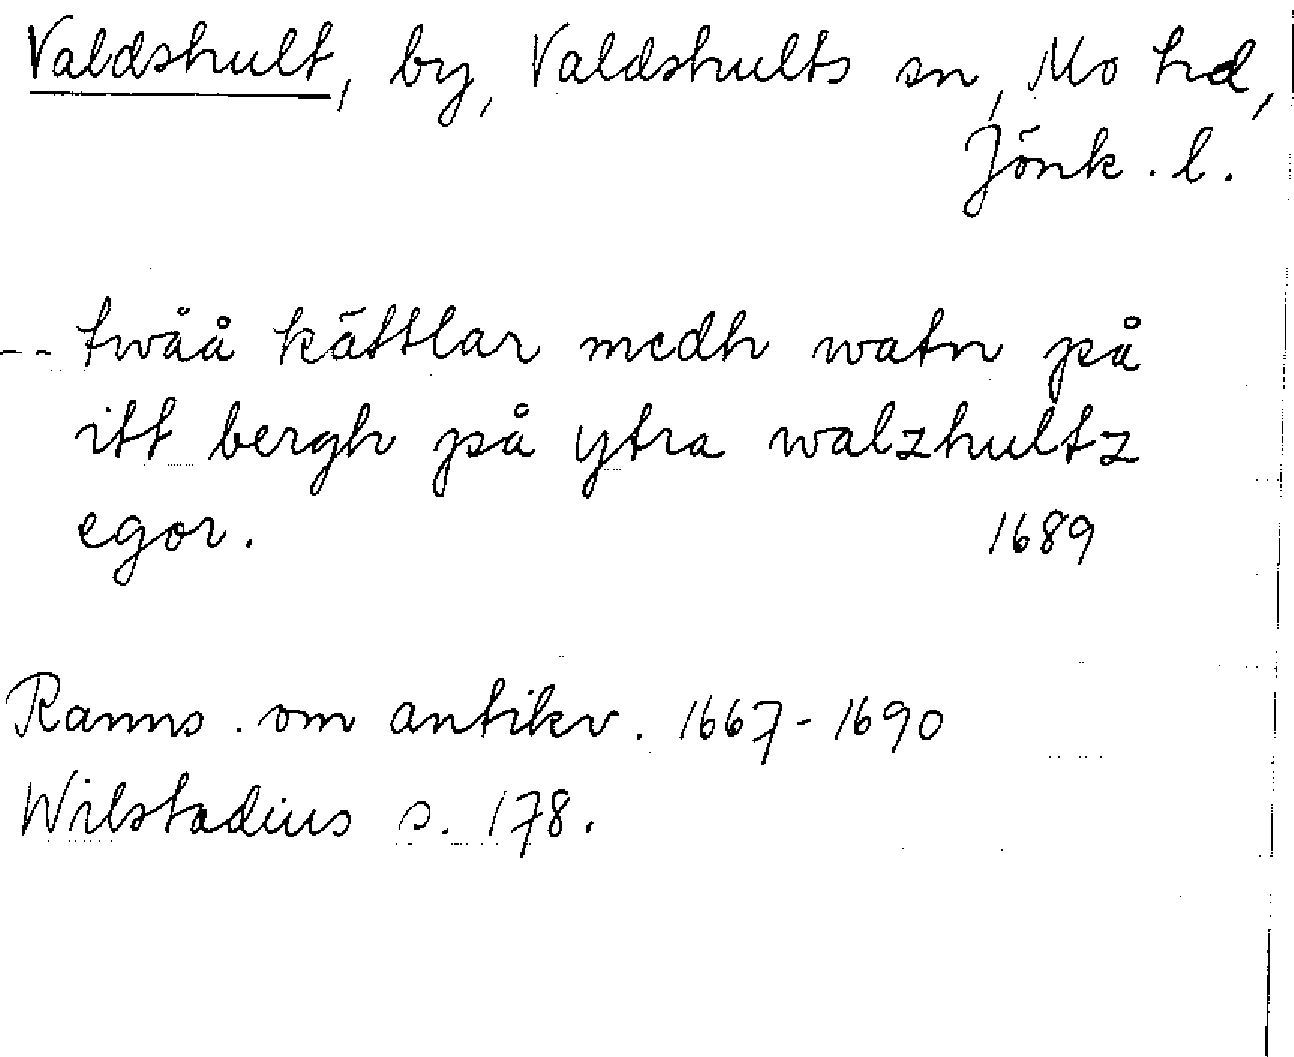 Valdshult, by, Valdshults sn, Mo hd,
Jönk. l.
-- twåå kättlar medh watn på
itt bergh på ytra walzhultz
egor. 1689
Ranns. om antikv. 1667-1690
Wilstadius s. 178.